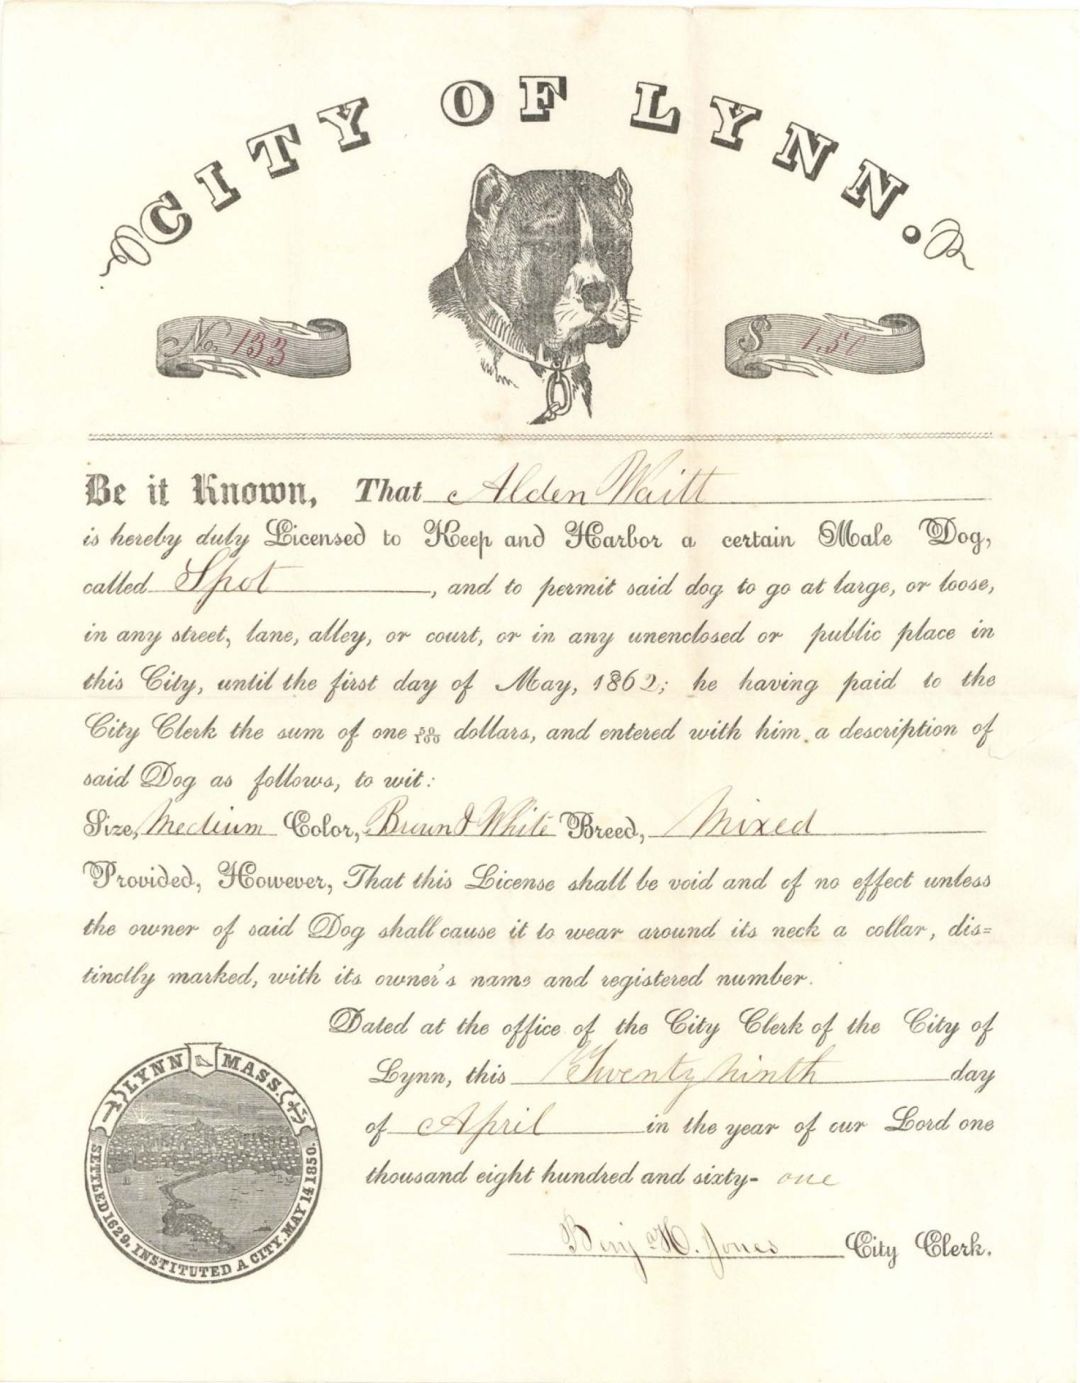 CITY OF LYNN.
No. 133
$ 1.50
Be it Known, That Alden Waitt
is hereby duly Licensed to Keep and Harbor a certain Male Dog,
called Spot, and to permit said dog to go at large, or loose,
in any street, lane, alley, or court, or in any unenclosed or public place in
this City, until the first day of May, 1862; he having paid to the
City Clerk the sum of one 50/100 dollars, and entered with him a description of
said Dog as follows, to wit:
Size, Medium Color, Brown & White Breed, Mixed
Provided, However, That this License shall be void and of no effect unless
the owner of said Dog shall cause it to wear around its neck a collar, dis=
tinctly marked, with its owner's name and registered number.
Dated at the office of the City Clerk of the City of
Lynn, this Twenty ninth day
of April in the year of our Lord one
thousand eight hundred and sixty- one
Benj H. Jones City Clerk.
LYNN MASS.
SETTLED 1629. INSTITUTED A CITY. MAY 14 1850.